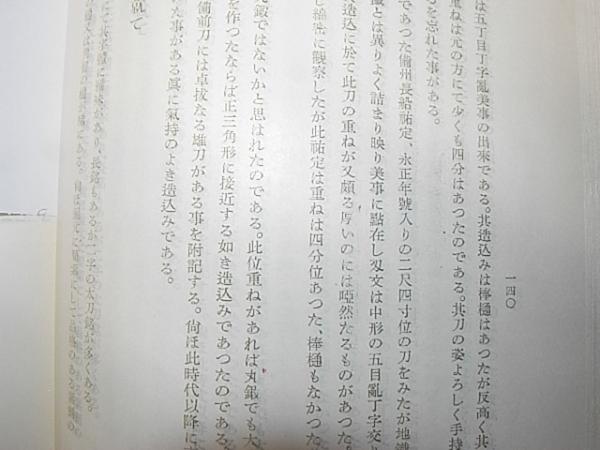 一四〇
は五丁目丁字亂美事の出來である。其造込みは棒樋はあつたが反高く其
重ねは元の方にて少くも四分はあつたのである。其刀の姿よろしく手持
を忘れた事がある。
であつた備州長船祐定、永正年號入りの二尺四寸位の刀をみたが地鐵
鐵とは異りよく詰まり映り美事に點在し刄文は中形の五目亂丁字交り
造込に於て此刀の重ねが又頗る厚いのには啞然たるものがあつた。
し綿密に觀察したが此祐定は重ねは四分位あつた、棒樋もなかつた
丸鍛ではないかと思はれたのである。此位重ねがあれば丸鍛でも大
を作つたならば正三角形に接近する如き造込みであつたのである
備前刀には卓拔なる雄刀がある事を附記する。尙ほ此時代以降に
た事がある眞に氣持のよき造込みである。
就て
長銘もあるが二字の太刀銘が多くある。